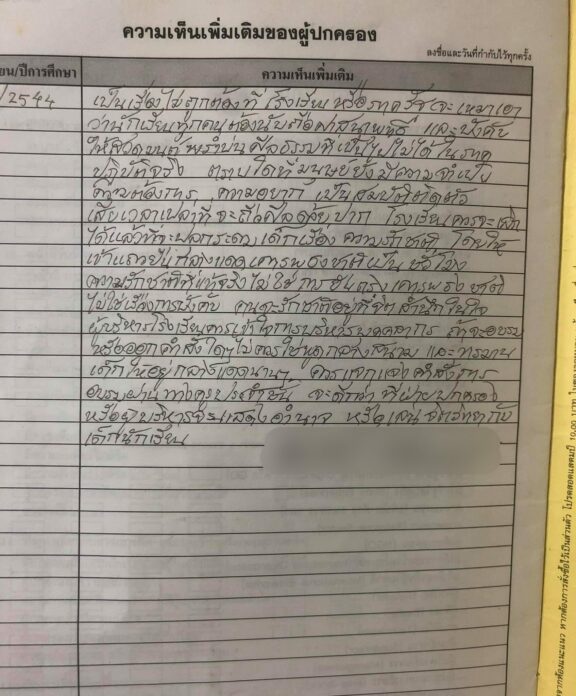 ความเห็นเพิ่มเติมของผู้ปกครอง
ลงชื่อและวันที่กำกับไว้ทุกครั้ง
ยน/ปีการศึกษา
ความเห็นเพิ่มเติม
/2544
เป็นเรื่องไม่ถูกต้องที่ โรงเรียน หรือภาครัฐจะเหมาเอา
ว่านักเรียนทุกคนต้องนับถือศาสนาพุทธ และบังคับ
ให้สวดมนต์ พร่ำบ่นศีลธรรมที่เป็นไปไม่ได้ในภาค
ปฏิบัติจริง ตราบใดที่มนุษย์ยังมีความจำเป็น
ความต้องการ ความอยาก เป็นสมบัติติดตัว
เสียเวลาเปล่าที่จะถือศีลด้วยปาก โรงเรียนควรจะเลิก
ได้แล้วที่จะปลุกระดมเด็กเรื่อง ความรักชาติ โดยให้
เข้าแถวยืนกลางแดดเคารพธงชาติเป็นชั่วโมง
ความรักชาติที่แท้จริงไม่ใช่ การยืนตรงเคารพธงชาติ
ไม่ใช่เรื่องการบังคับ คนจะรักชาติอยู่ที่จิตสำนึกในใจ
ผู้บริหารโรงเรียนควรเข้าใจการบริหารบุคลากร ถ้าจะอบรม
หรือออกคำสั่งใดๆไม่ควรใช้พูดกลางสนาม และทรมาน
เด็กให้อยู่กลางแดดนานๆ ควรแจกแจงคำสั่งการ
อบรมผ่านทางครูประจำชั้น จะดีกว่าที่ฝ่ายปกครอง
หรือผู้บริหารจะแสดงอำนาจ หรือเล่นจิตวิทยากับ
เด็กนักเรียน